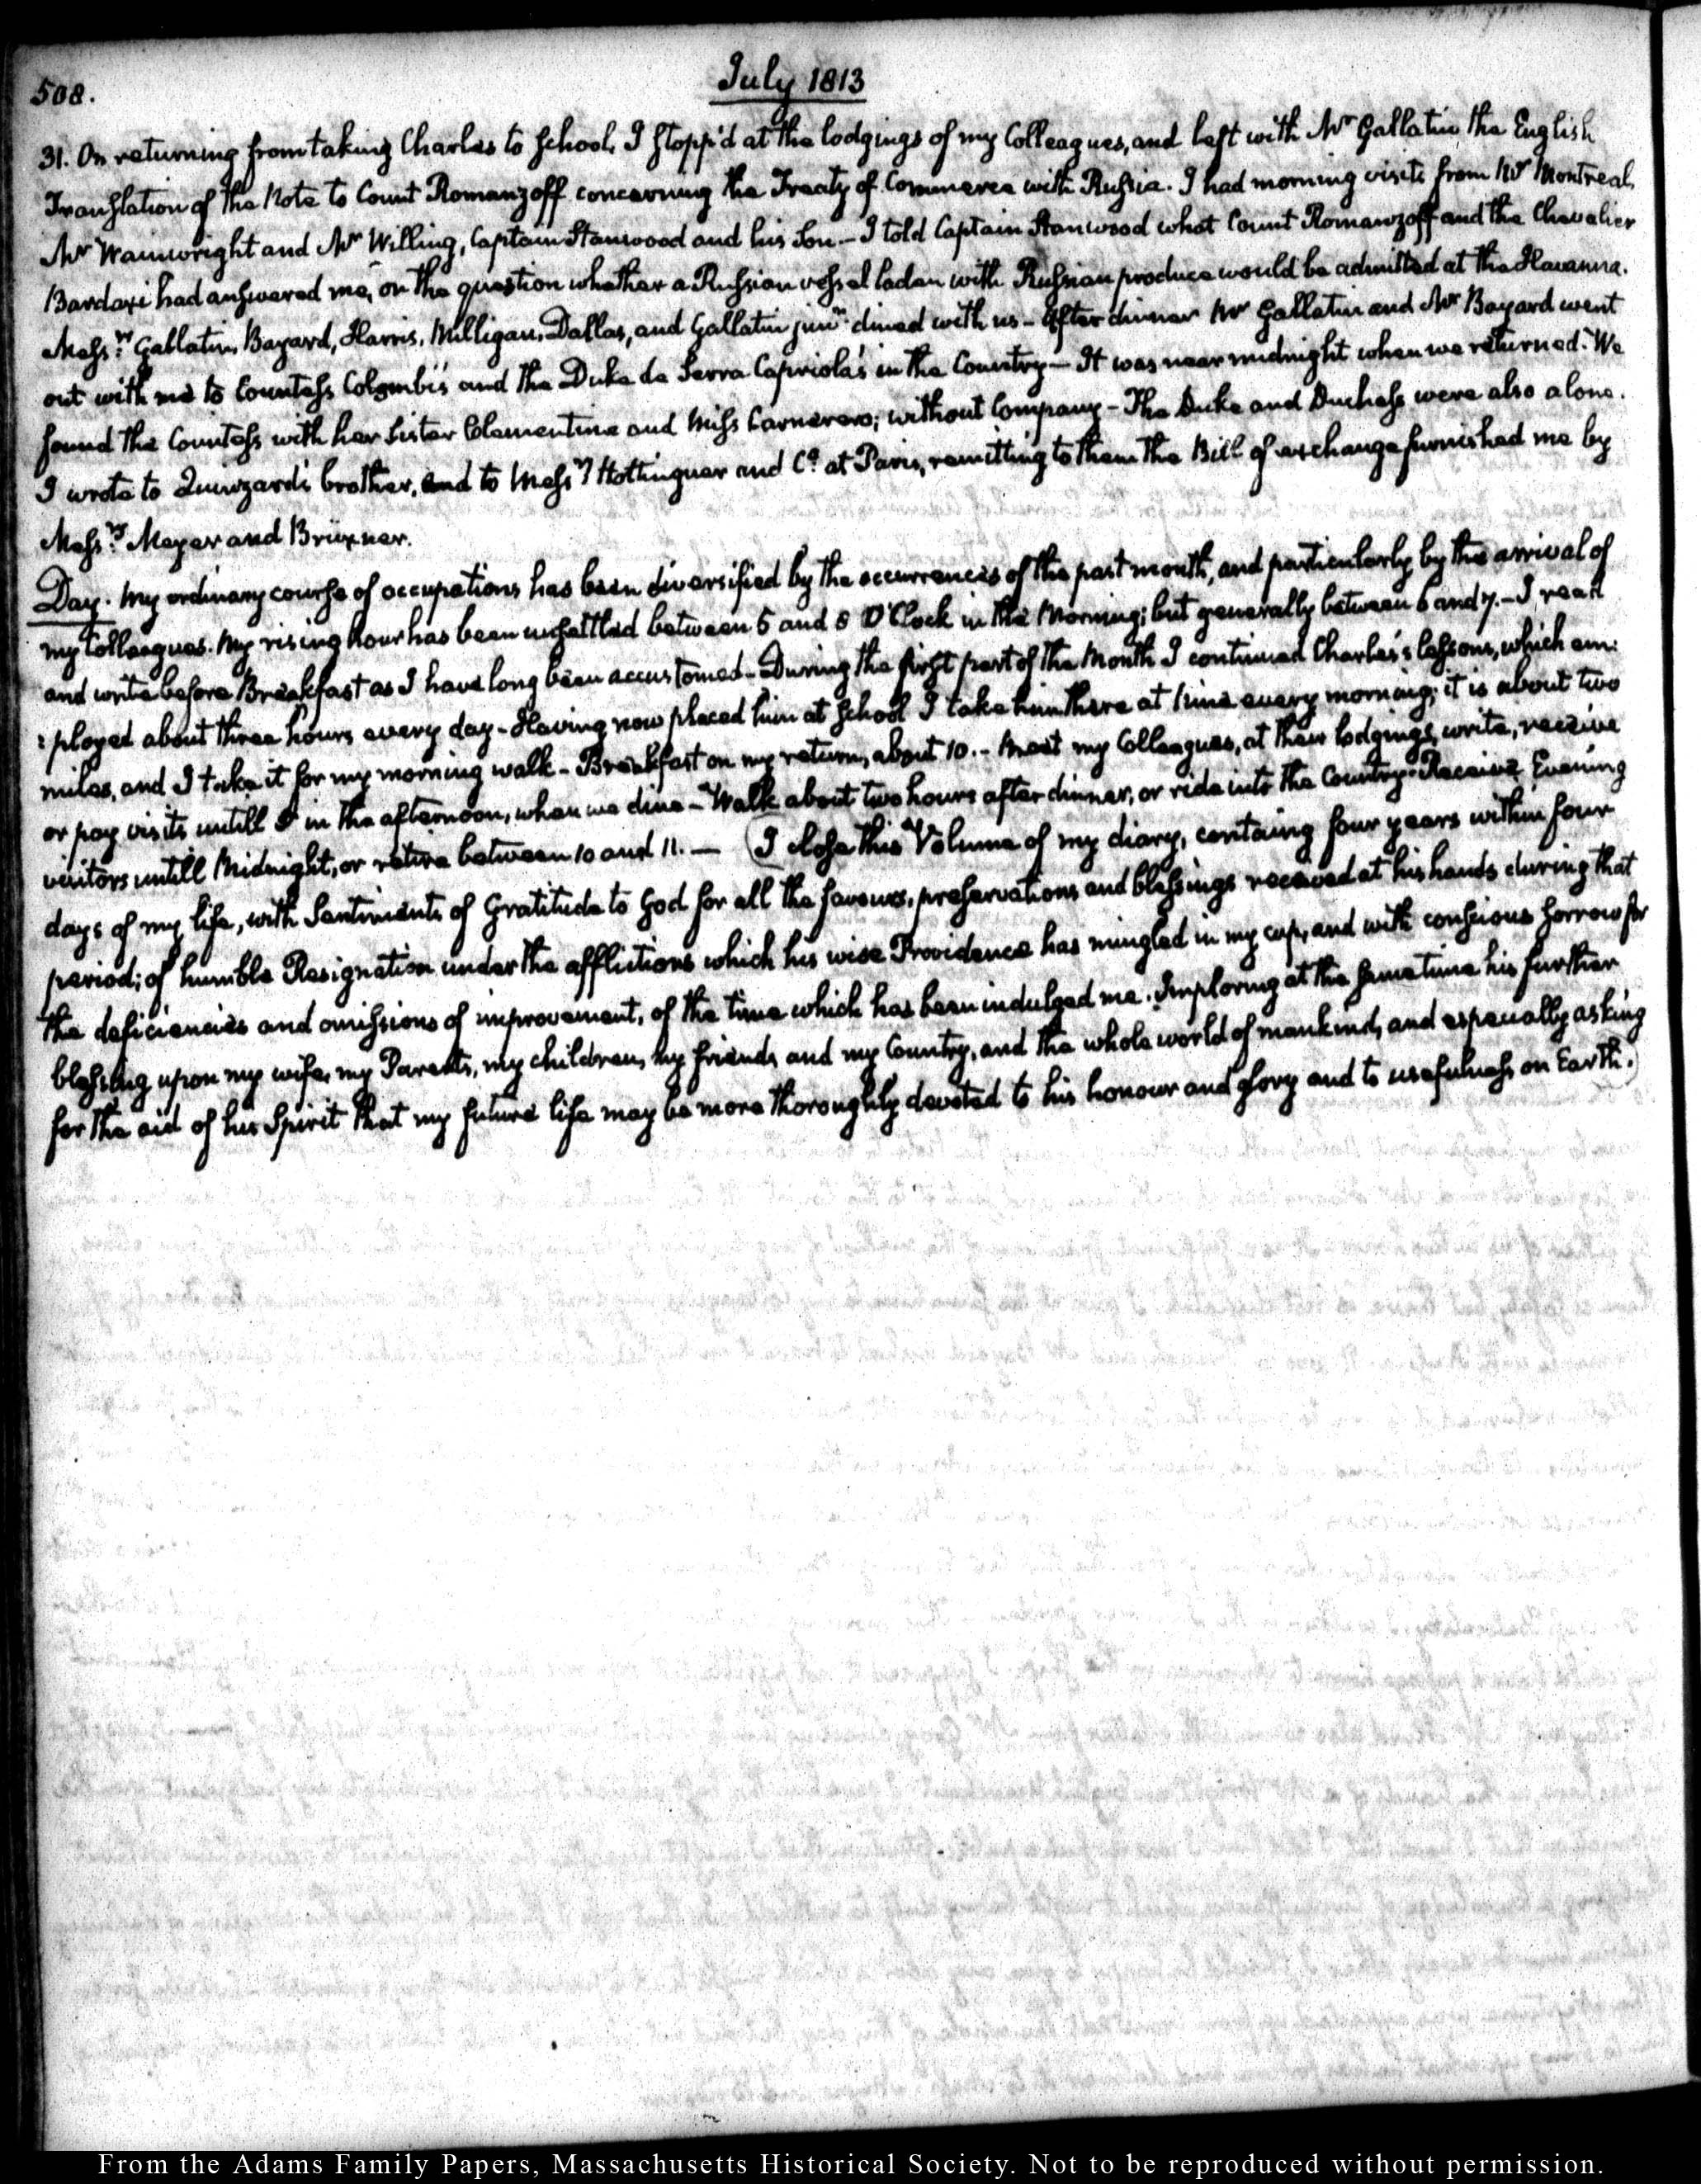 508.
July 1813
31. On returning from taking Charles to School, I stopp'd at the lodgings of my Colleagues, and left with Mr Gallatin the English
Translation of the Note to Count Romanzoff concerning the Treaty of Commerce with Russia. I had morning visits from Mr Montreal,
Mr Wainwright and Mr Willing, Captain Stanwood and his Son.— I told Captain Stanwood what Count Romanzoff and the Chevalier
Bardaxi had answered me, on the question whether a Russian vessel laden with Russian produce would be admitted at the Havanna.
Messrs Gallatin, Bayard, Harris, Milligan, Dallas, and Gallatin junr dined with us— After dinner Mr Gallatin and Mr Bayard went
out with me to Countess Colombi's and the Duke de Serra Capriola's in the Country— It was near midnight when we returned. We
found the Countess with her Sister Clementina and Miss Carnevero; without Company— The Duke and Duchess were also alone.
I wrote to Quinzard's brother, and to Messrs Hottinguer and Co. at Paris, remitting to them the Bill of exchange furnished me by
Messrs Meyer and Brüxner.
Day. My ordinary course of occupations has been diversified by the occurrences of the past month, and particularly by the arrival of
my Colleagues. My rising hour has been unsettled between 5 and 8 O'Clock in the Morning; but generally between 6 and 7.— I read
and write before Breakfast as I have long been accustomed— During the first part of the Month I continued Charles's lessons, which em:
:ployed about three hours every day— Having now placed him at School I take him there at nine every morning; it is about two
miles, and I take it for my morning walk— Breakfast on my return, about 10.— Meet my Colleagues, at their lodgings, write, receive
or pay visits untill 5 in the afternoon, when we dine— Walk about two hours after dinner, or ride into the Country. Receive Evening
visitors untill Midnight, or retire between 10 and 11.— (I close this Volume of my diary, containg four years within four
days of my life, with Sentiments of Gratitude to God for all the favours, preservations and blessings received at his hands during that
period; of humble Resignation under the afflictions which his wise Providence has mingled in my cup, and with conscious sorrow for
the deficiencies and omissions of improvement, of the time which has been indulged me. Imploring at the same time his further
blessing upon my wife, my Parents, my children, my friends and my Country, and the whole world of mankind, and especially asking
for the aid of his Spirit that my future life may be more thoroughly devoted to his honour and glory and to usefulness on Earth.)
From the Adams Family Papers, Massachusetts Historical Society. Not to be reproduced without permission.